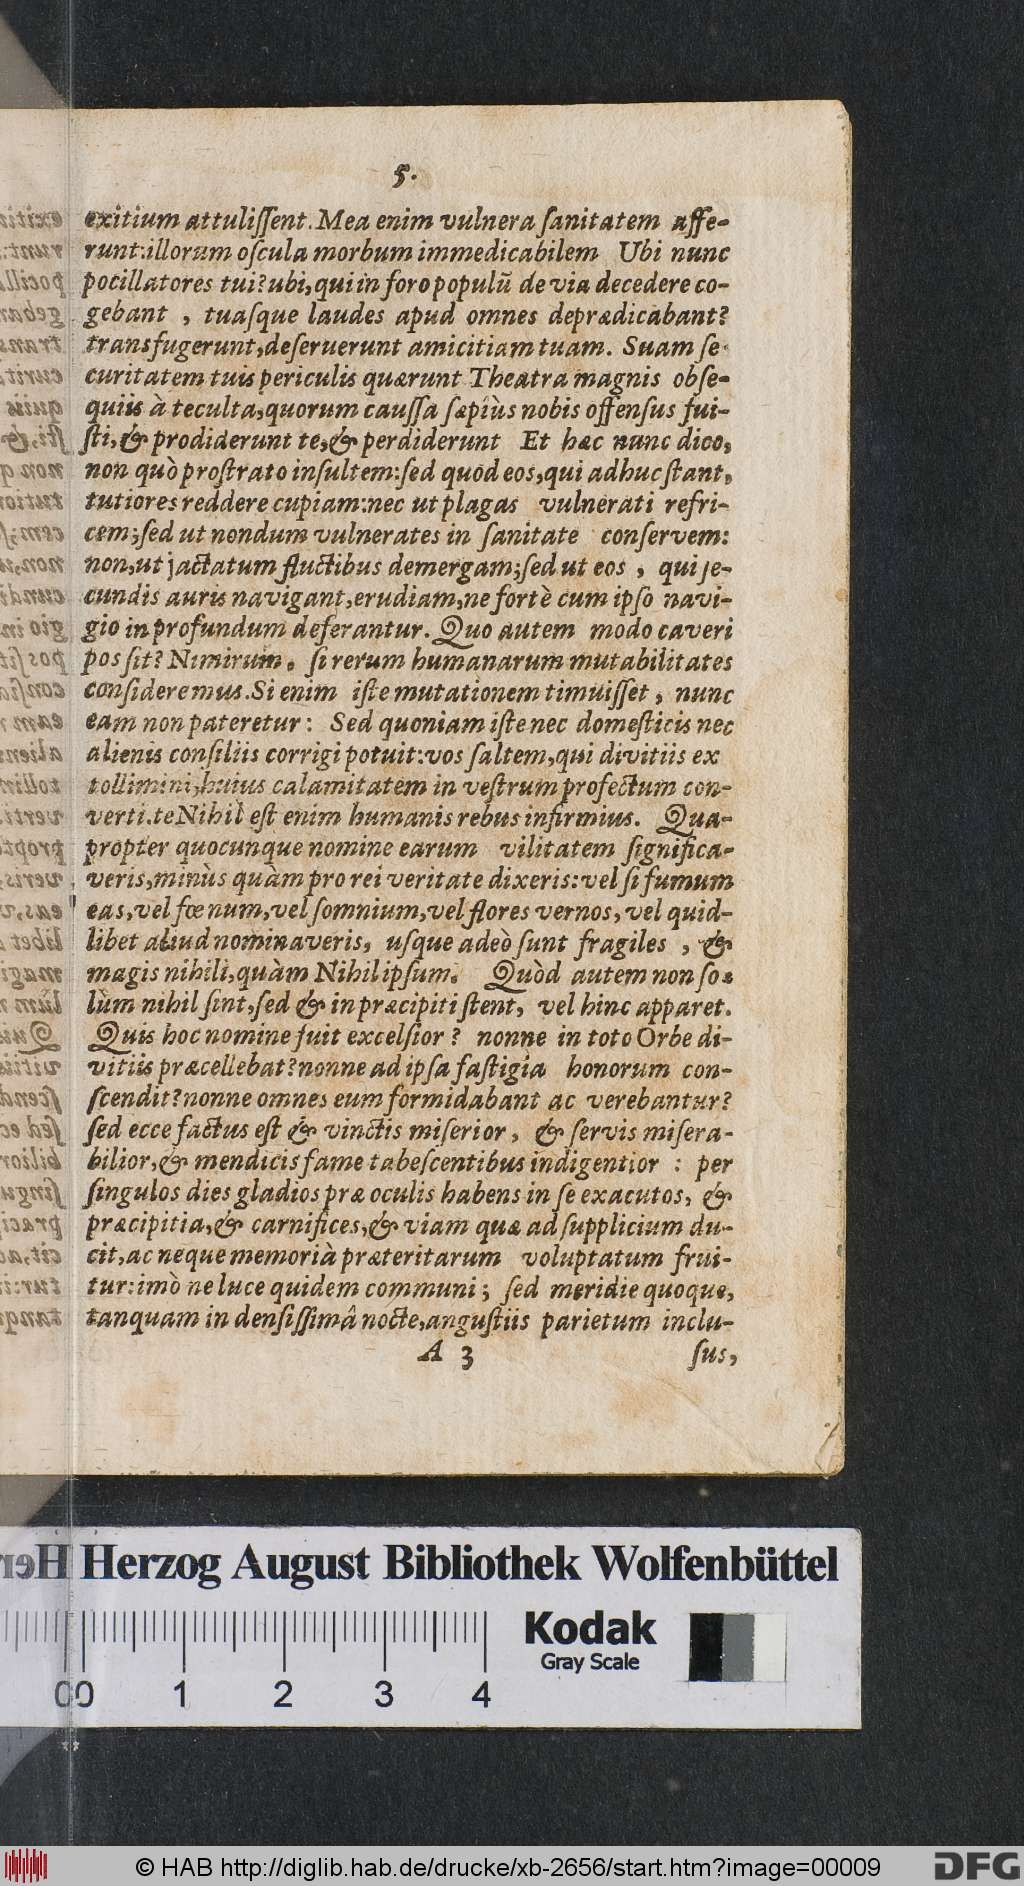 5.
exitium attuliſſent. Mea enim vulnera ſanitatem affe-
runt: illorum oſcula morbum immedicabilem Ubi nunc
pocillatores tui? ubi, qui in foro populū de via decedere co-
gebant , tuaſque laudes apud omnes deprædicabant?
transfugerunt, deſeruerunt amicitiam tuam. Suam ſe-
curitatem tuis periculis quærunt Theatra magnis obſe-
quiis à te culta, quorum cauſſa ſæpiùs nobis offenſus fui-
ſti, & prodiderunt te, & perdiderunt Et hæc nunc dico,
non quò proſtrato inſultem: ſed quod eos, qui adhuc ſtant,
tutiores reddere cupiam: nec ut plagas vulnerati refri-
cem; ſed ut nondum vulnerates in ſanitate conſervem:
non, ut jactatum fluctibus demergam; ſed ut eos , qui ſe-
cundis auris navigant, erudiam, ne fortè cum ipſo navi-
gio in profundum deferantur. Quo autem modo caveri
pos ſit? Nimirum, ſi rerum humanarum mutabilitates
conſideremus. Si enim iſte mutationem timuiſſet , nunc
eam non pateretur: Sed quoniam iſte nec domeſticis nec
alienis conſiliis corrigi potuit: vos ſaltem, qui divitiis ex
tollimini, huius calamitatem in veſtrum profectum con-
verti.te Nihil eſt enim humanis rebus infirmius. Qua-
propter quocunque nomine earum vilitatem ſignifica-
veris, minùs quàm pro rei veritate dixeris: vel ſi fumum
eas, vel fœnum, vel ſomnium, vel flores vernos, vel quid-
libet aliud nominaveris, uſque adeò ſunt fragiles , &
magis nihili, quàm Nihil ipſum. Quòd autem non ſo-
lùm nihil ſint, ſed & in præcipiti ſtent, vel hinc apparet.
Quis hoc nomine fuit excelſior? nonne in toto Orbe di-
vitiis præcellebat? nonne ad ipſa faſtigia honorum con-
ſcendit? nonne omnes eum formidabant ac verebantur?
ſed ecce factus eſt & vinctis miſerior, & ſervis miſera-
bilior, & mendicis fame tabeſcentibus indigentior : per
ſingulos dies gladios præ oculis habens in ſe exacutos, &
præcipitia, & carnifices, & viam quæ ad ſupplicium du-
cit, ac neque memoriâ præteritarum voluptatum frui-
tur: imò ne luce quidem communi; ſed meridie quoque,
tanquam in denſiſſimâ nocte, anguſtiis parietum inclu-
A 3 ſus,
Herzog August Bibliothek Wolfenbüttel
Kodak
Gray Scale
0 1 2 3 4
© HAB http://diglib.hab.de/drucke/xb-2656/start.htm?image=00009
DFG